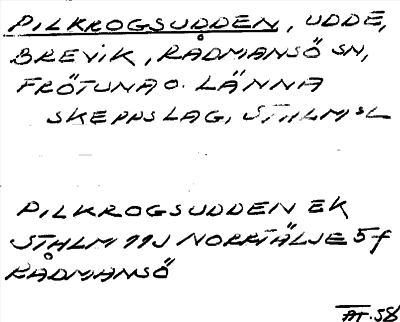 PILKROGSUDDEN, UDDE,
BREVIK, RÅDMANSÖ SN,
FRÖTUNA O. LÄNNA
SKEPPSLAG, STHLMSL
PILKROGSUDDEN EK
STHLM 11J NORRTÄLJE 5f
RÅDMANSÖ
AT.58